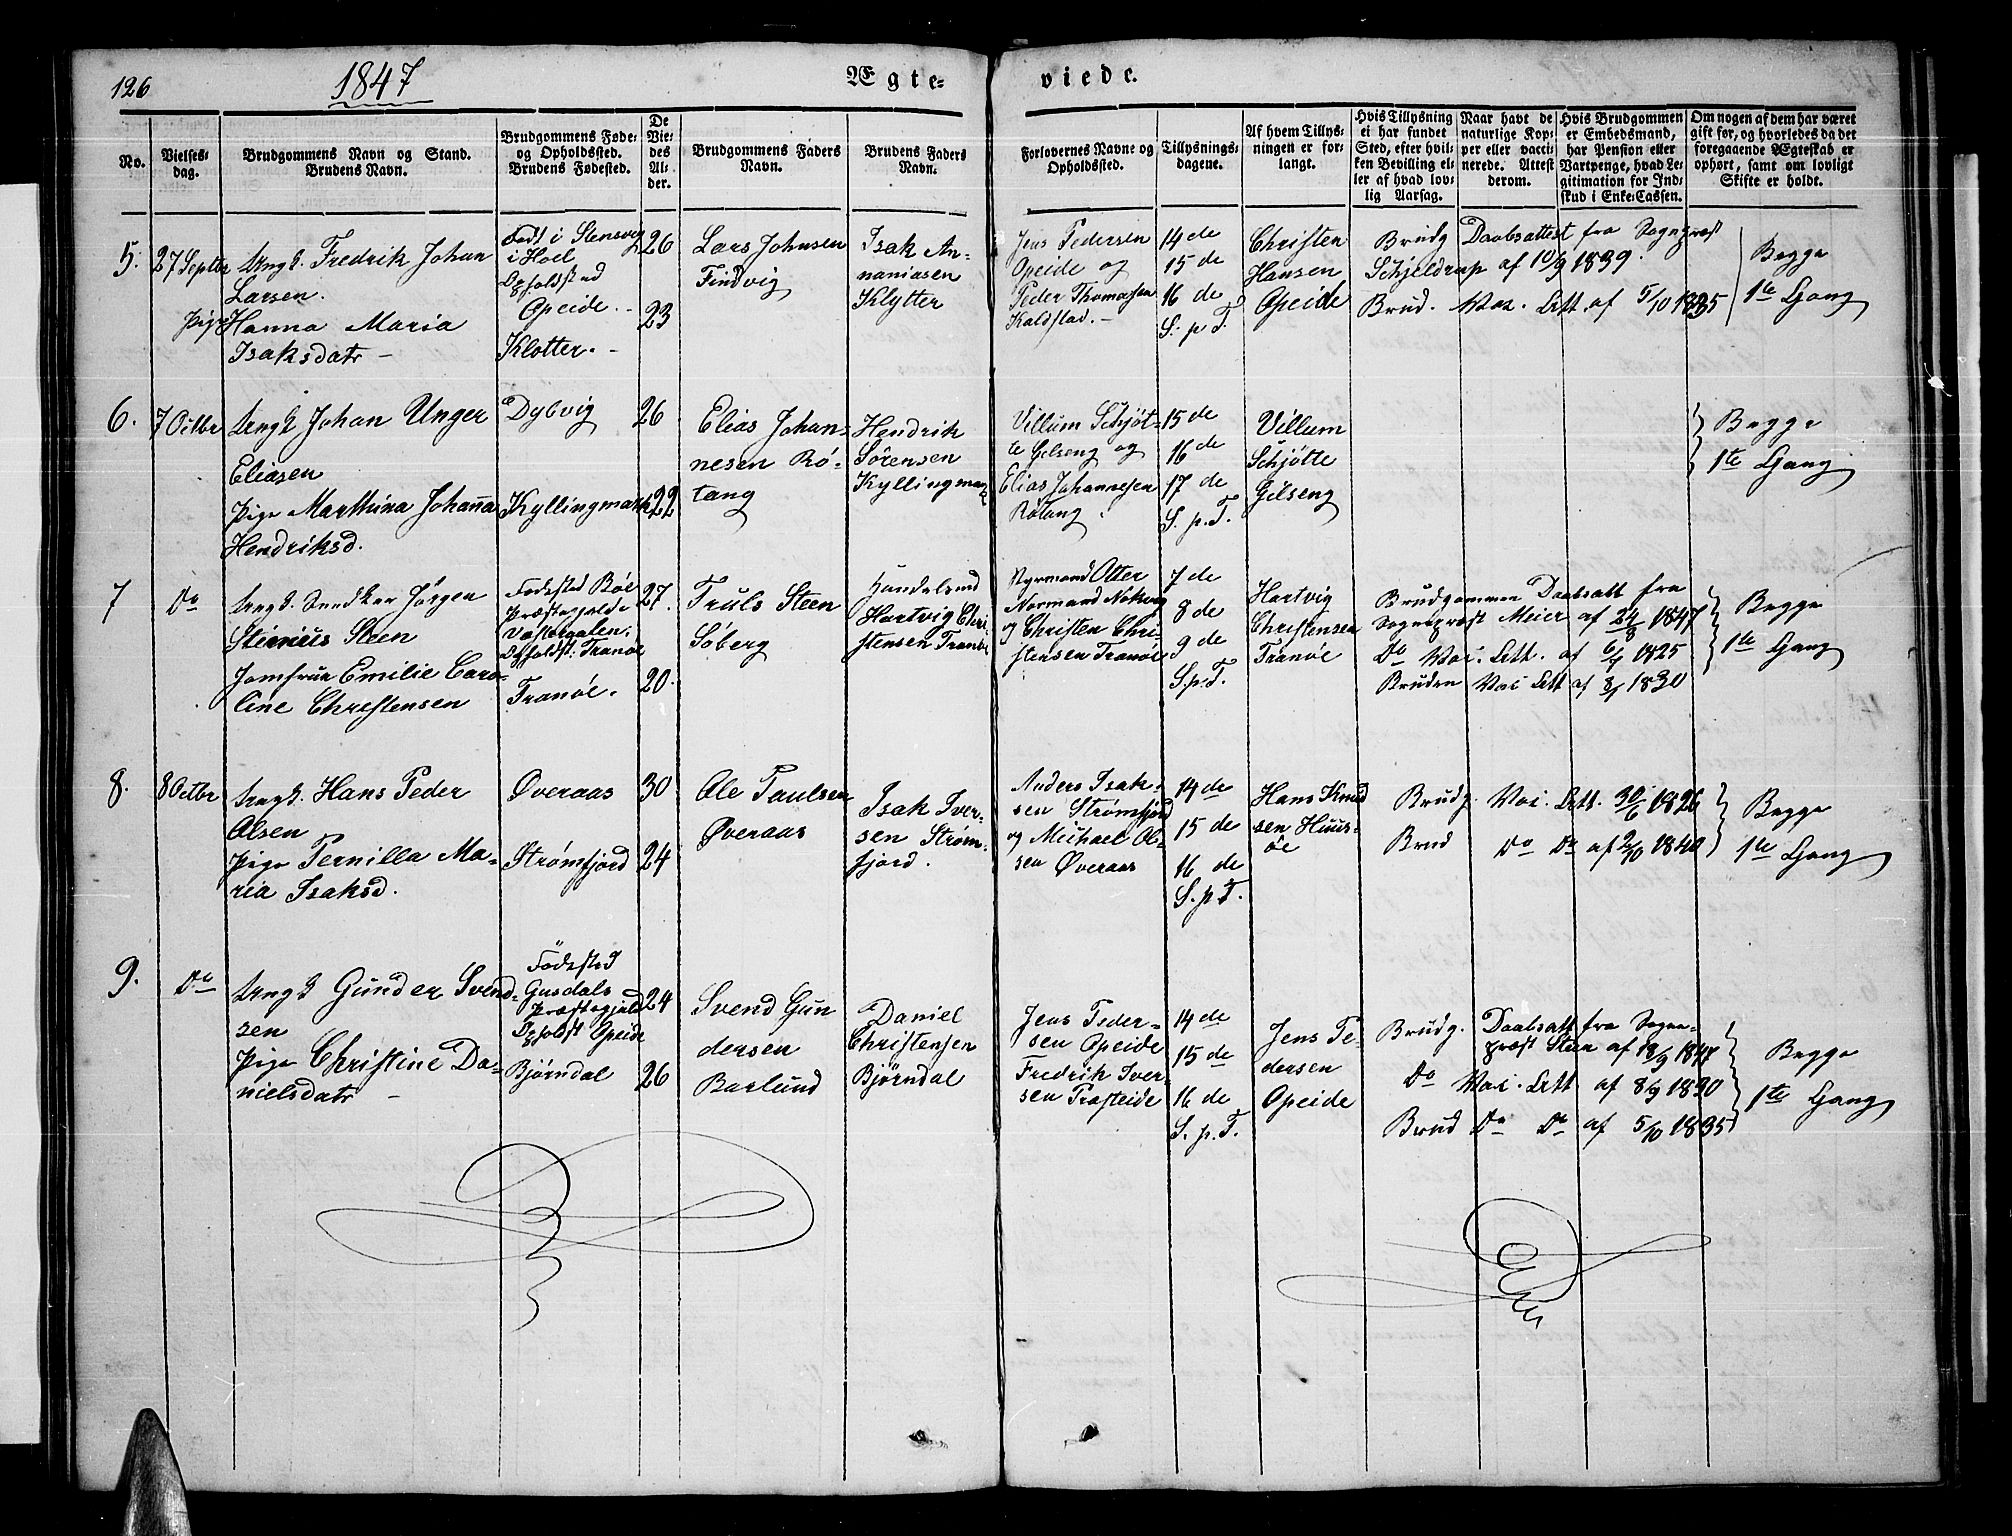 126
1847
Ægte-
viede.
No.
Vielses-
dag.
Brudgommens Navn og Stand.
Brudens Navn.
Brudgommens Føde-
og Opholdssted.
Brudens Fødested.
De
Vie-
des
Al-
der.
Brudgommens Faders
Navn.
Brudens Faders
Navn.
Forlovernes Navne og
Opholdssted.
Tillysnings-
dagene.
Af hvem Tillys-
ningen er for-
langt.
Hvis Tillysning
ei har fundet
Sted, efter hvil-
ken Bevilling el-
ler af hvad lov-
lig Aarsag.
Naar havt de
naturlige Kop-
per eller vacci-
nerede. Attest
derom.
Hvis Brudgommen
er Embedsmand,
har Pension eller
Vartpenge, hvad Le-
gitimation for Ind-
skud i Enke-Cassen.
Om nogen af dem har været
gift før, og hvorledes da det
foregaaende Ægteskab er
ophørt, samt om lovligt
Skifte er holdt.
5.
27 Septbr
Ungk. Fredrik Johan
Larsen.
Pige Hanna Maria
Isaksdatr –
Født i Stensvig
i Hoel
Opholdsted
Opeide. –
Klotter. –
26
23
Lars Johnsen
Findvig
Isak An-
naniasen
Klytter
Jens Pedersen
Opeide og
Peder Thomassen
Kaldstad. –
14de
15de
16 de
S. p. T.
Christen
Hansen
Opeide
Brudg Daabsattest fra Sognepræst
Schjeldrup af 10/9 1839.
Brud. Vac. Att. af 5/10 1835
Begge
1te Gang
6.
7 Octbr
Ungk Johan Unger
Eliasen
Pige Marthina Johanna
Hendriksd.
Dybvig
Kyllingmark
26
22
Elias Johan-
nesen Rø-
tang
Hendrik
Sørensen
Kyllingmark
Villum Schjøt-
te Gilseng og
Elias Johannesen
Røtang.
15de
16de
17 de
S. p. T.
Villum
Schjøtte
Gilseng
Begge
1te Gang
7
Do
Ungk. Jørgen
Stinius Steen
Jomfrue Emilie Caro-
line Christensen
Fødested Bøe
Præstegjeld i
Vesteraalen.
Opholdst: Tranøe
Tranøe.
27.
20.
Truls Steen
Søberg
Handelsmd
Hartvig Chri-
stensen Tranøe
Otter
Normand
og Christen Chri-
stensen Tranøe
7 de
8 de
9 de
S.p.T.
Hartvig
Christensen
Tranöe
Brudgommen Daabsatt fra
Sognepræst Meier af 24/8 1847
Do Vac. Att. af 6/9 1825
Bruden Vac Att af 8/1 1830
Begge
1te Gang
8.
8 Octbr
Ungk. Hans Peder
Olsen
Pige Pernilla Ma-
ria Isaksd.
Øveraas
Strømsfjord
30
24
Ole Paulsen
Øveraas
Isak Iver-
sen Strøm-
fjord.
Anders Isak-
sen Strømsfjord
og Michael Ol-
sen Øveraas
14 de
15 de
16 de
S. p. T.
Hans Knud
sen Huus-
öe
Brudg. Vac. Att. 30/6 1826
Brud Do Do af 2/10 1840
Begge
1te Gang
9.
Do
Ungk Gunder Svend-
sen
Pige Christine Da-
nielsdatr –
Fødested
Gusdals
Præstegjeld
Opholdst Opeide
Bjørndal
24
26
Svend Gun
dersen
Barlund
Daniel
Christensen
Bjørndal
Jens Peder-
sen Opeide
Fredrik Iver-
sen Præsteide
14 de
15 de
16 de
S. p. T.
Jens Pe-
dersen
Opeide
Brudg. Daabsatt fra Sogne-
præst Steen af 18/9 1847
Do Vac. Att af 8/9 1830
Brud Do Do af 5/10 1835
Begge
1te Gang